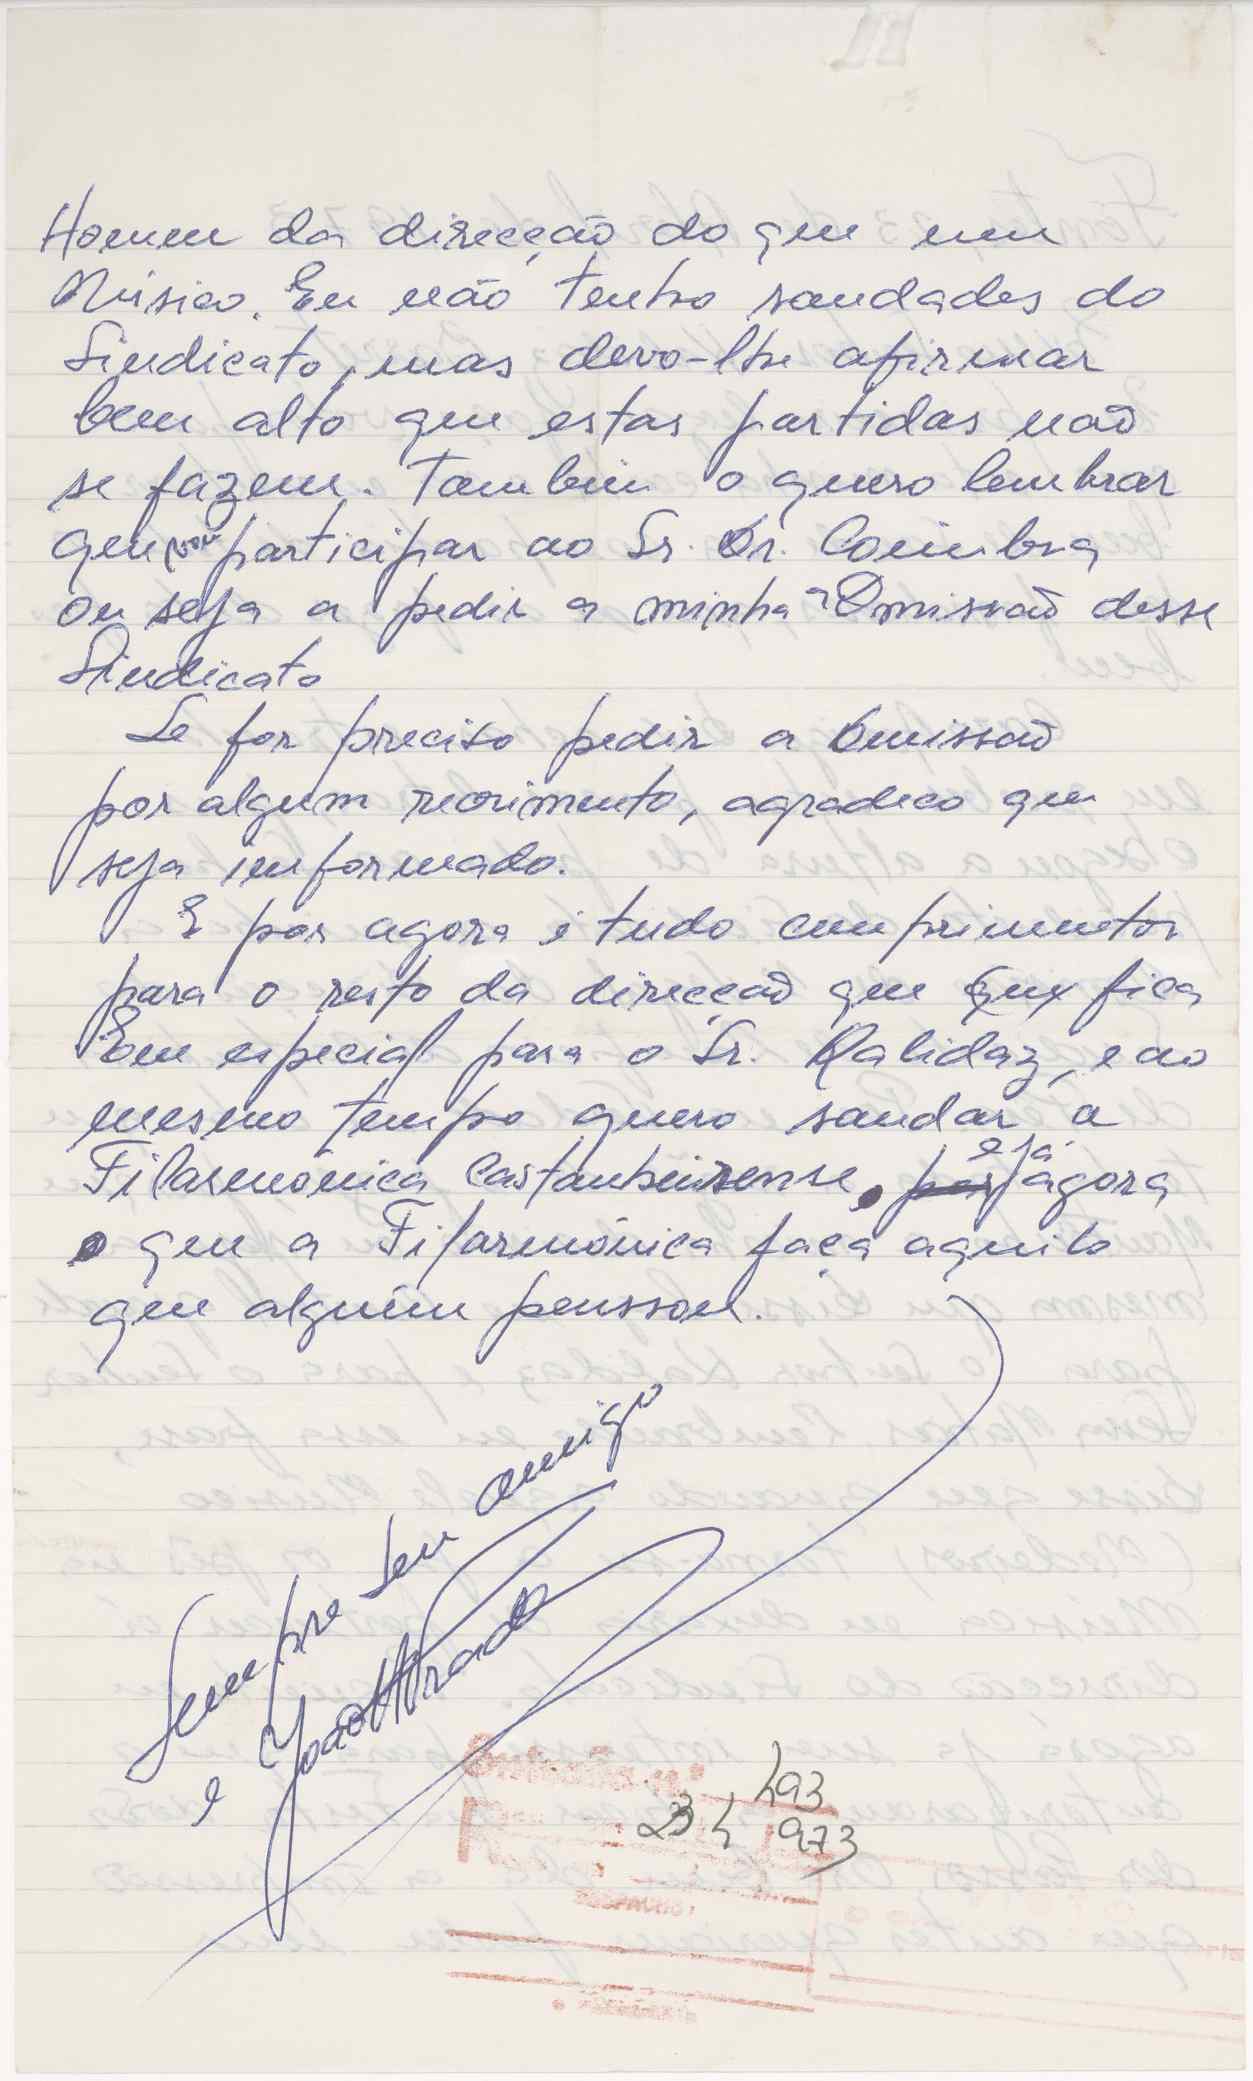 Homem da direcção do que um
Músico. Eu não tenho saudades do
Sindicato, mas devo-lhe afirmar
bem alto que estas partidas não
se fazem. Também o quero lembrar
que vou participar ao Sr. Dr. Coimbra
ou seja a pedir a minha a Dmissão desse
Sindicato
Se for preciso pedir a Dmissão
por algum recrimento, agradeco que
seja imformado.
E por agora é tudo cumprimetos
para o resto da direcção que fica
Em especial para o Sr. Kalidaz, e ao
mesmo tempo quero saudar a
Filarmónica Castanheirense. e já agora
que a Filarmónica faça aquilo
que alguém penssou.
Sempre Seu amigo
e João Prado
493
23 4 973